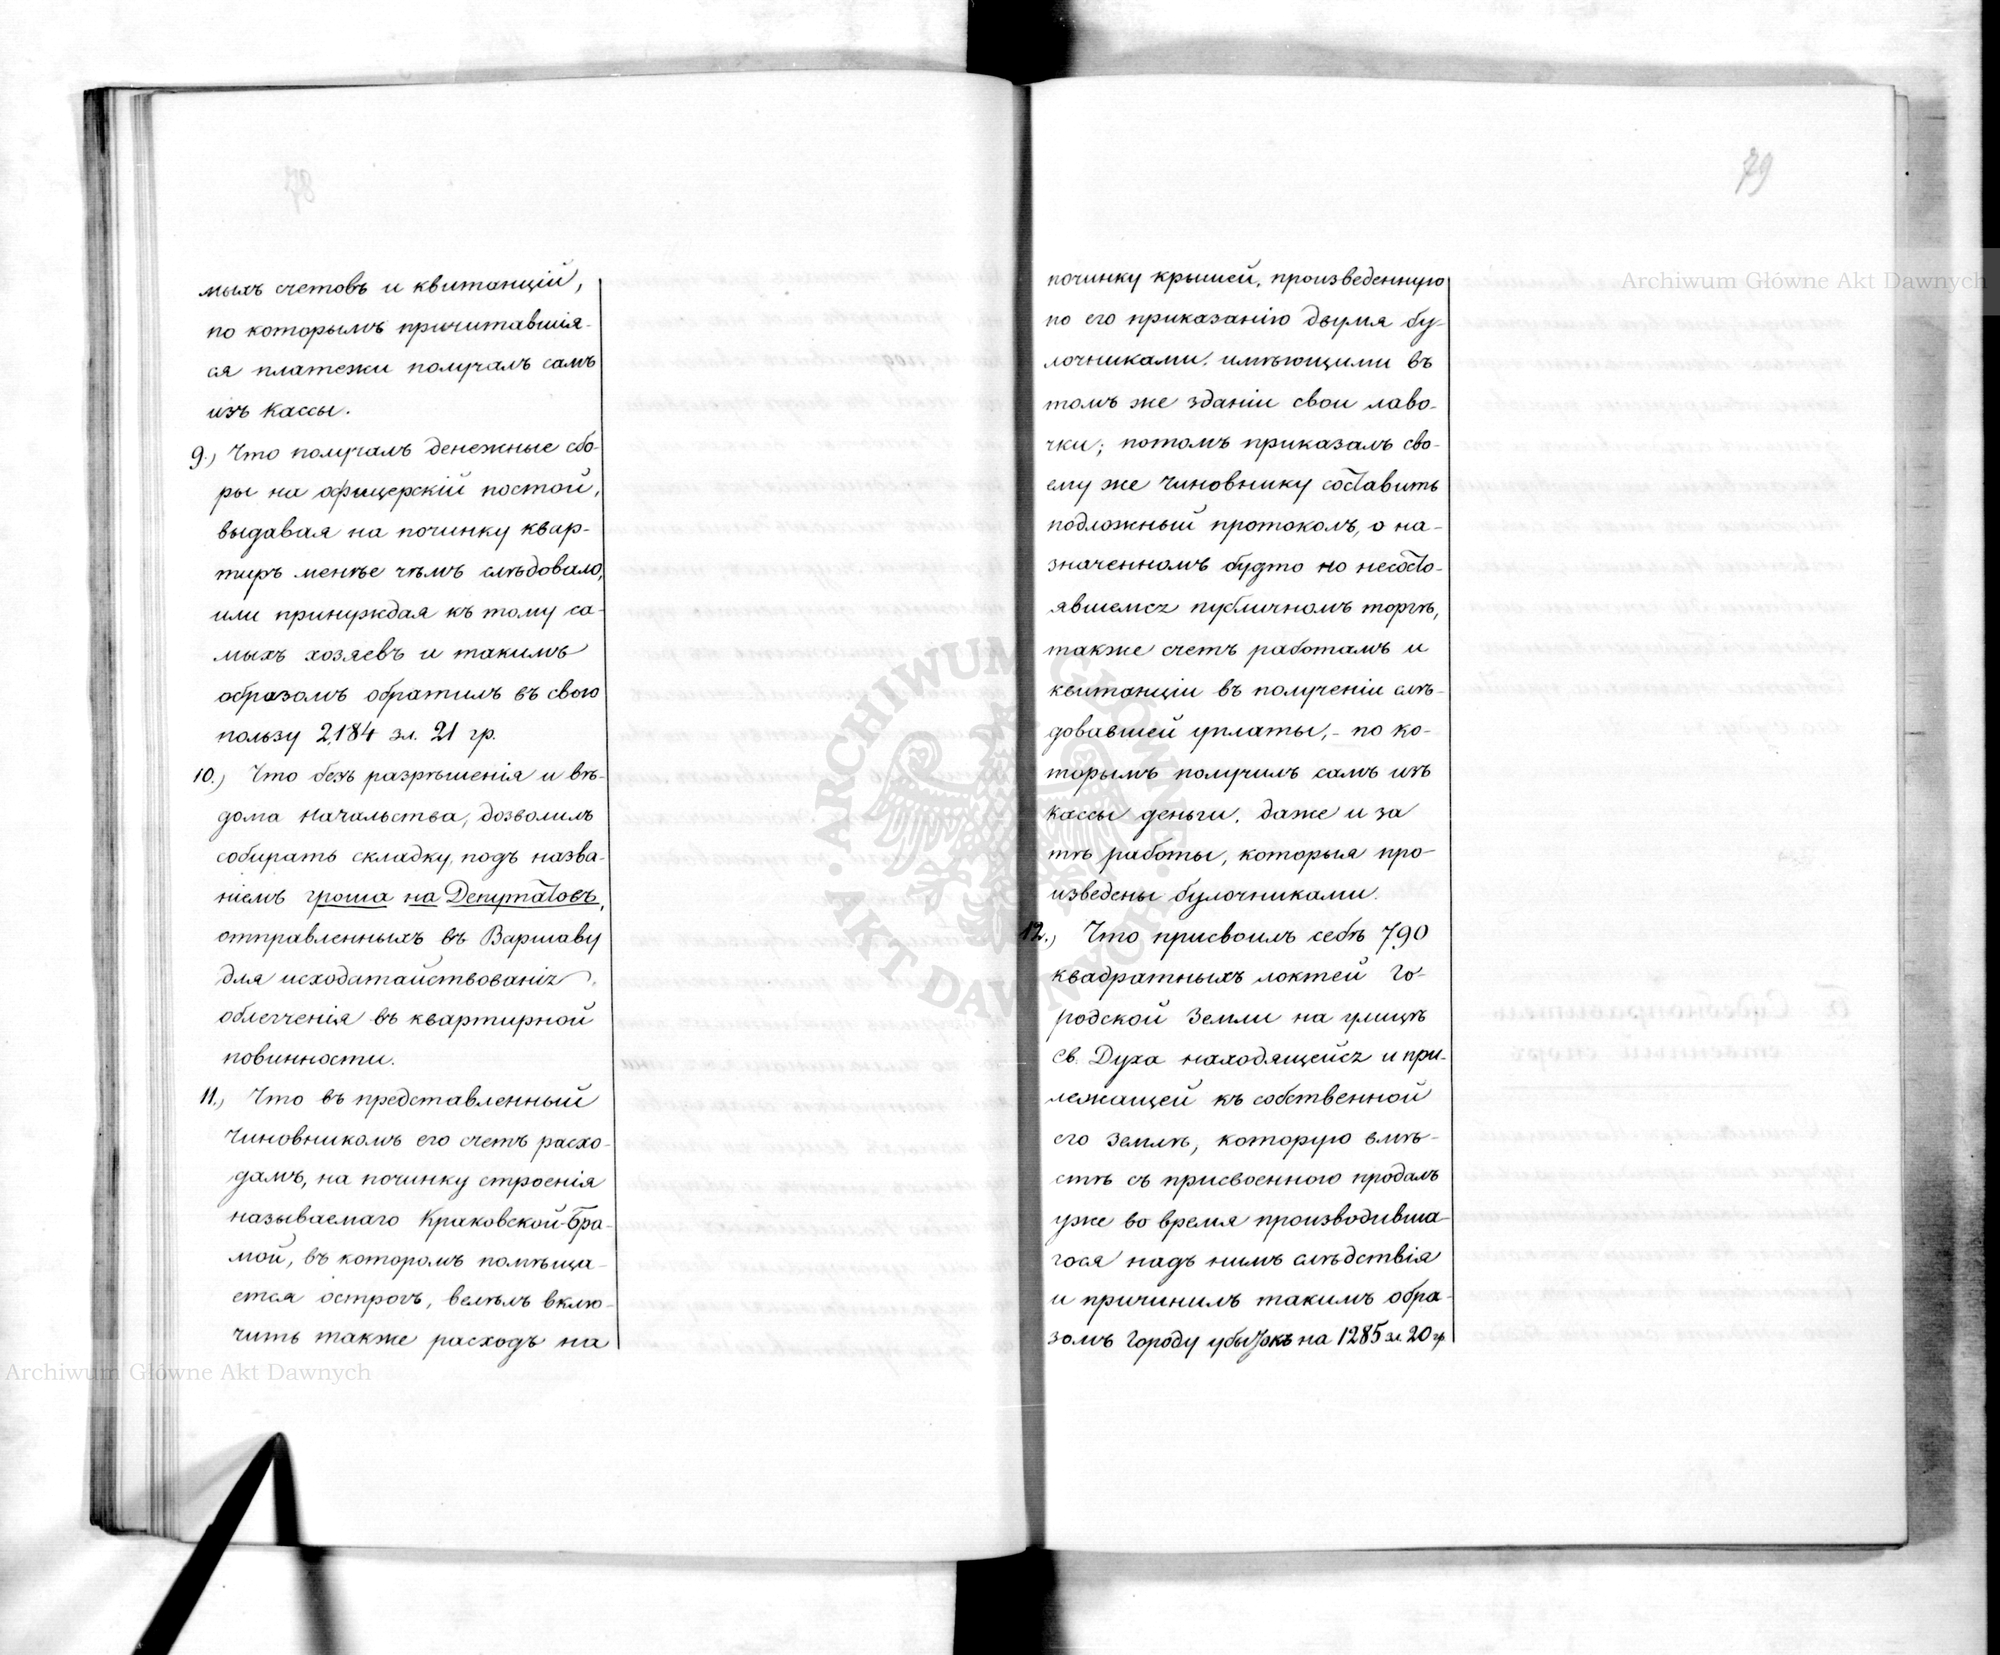 мыхъ счетовъ и квитанцій,
по которымъ причитавшія-
ся платежи получалъ самъ
изъ кассы.
9.) Что получалъ денежные сбо-
ры на офицерскій постой,
выдавая на починку квар-
тиръ менѣе чѣмъ слѣдовало,
или принуждая къ тому са-
мыхъ хозяевъ и такимъ
образомъ обратилъ въ свою
пользу 2,184 зл. 21 гр.
10.) Что безъ разрѣшенія и вѣ-
дома начальства, дозволилъ
собирать складку, подъ назва-
ніемъ гроша на Депутатовъ,
отправленныхъ въ Варшаву
для исходатайствованія
облегченія въ квартирной
повинности.
11.) Что въ представленный
чиновникомъ его счетъ расхо-
дамъ, на починку строенія
называемаго Краковской-Бра-
мой, въ которомъ помѣща-
ется острогъ, велѣлъ вклю-
чить также расходъ на
79
починку крышей, произведенную
по его приказанію двумя бу-
лочниками, имѣющими въ
томъ же зданіи свои лаво-
чки; потомъ приказалъ сво-
ему же чиновнику составить
подложный протоколъ, о на-
значенномъ будто но несосто-
явшемся публичномъ торгѣ,
также счетъ работамъ и
квитанціи въ полученіи слѣ-
довавшей уплаты, - по ко-
торымъ получилъ самъ изъ
кассы деньги, даже и за
тѣ работы, которыя про-
изведены булочниками.
12.) Что присвоилъ себѣ 790
квадратныхъ локтей го-
родской земли на улицѣ
Св. Духа находящейся и при-
лежащей къ собственной
его землѣ, которую вмѣ-
стѣ съ присвоенного продалъ
уже во время производивша-
гося надъ нимъ слѣдствія
и причинилъ такимъ обра-
зомъ городу убытокъ на 1285 зл 20 гр.
Archiwum Główne Akt Dawnych
Archiwum Główne Akt Dawnych
ARCHIWUM GŁÓWNE AKT DAWNYCH